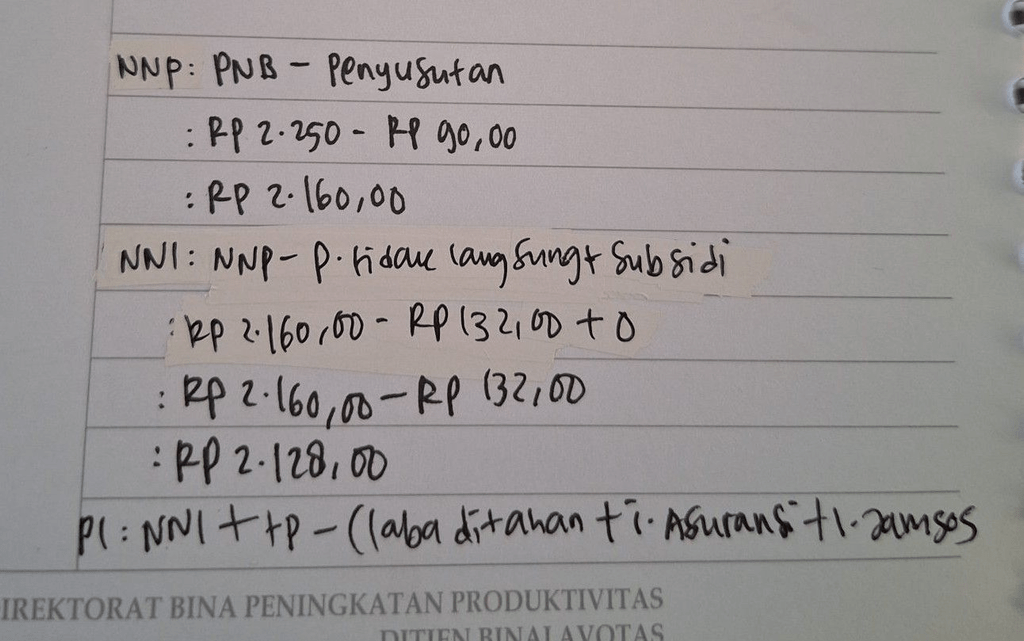 NNP: PNB - Penyusutan
: RP 2.250 - RP 90,00
: RP 2.160,00
NNI: NNP - P. tidak langsung + Subsidi
: RP 2.160,00 - RP 132,00 + 0
: RP 2.160,00 - RP 132,00
: RP 2.128,00
PI: NNI + tp - (laba ditahan + i. Asuransi + I. Jamsos
IREKTORAT BINA PENINGKATAN PRODUKTIVITAS
DITJEN BINALAVOTAS